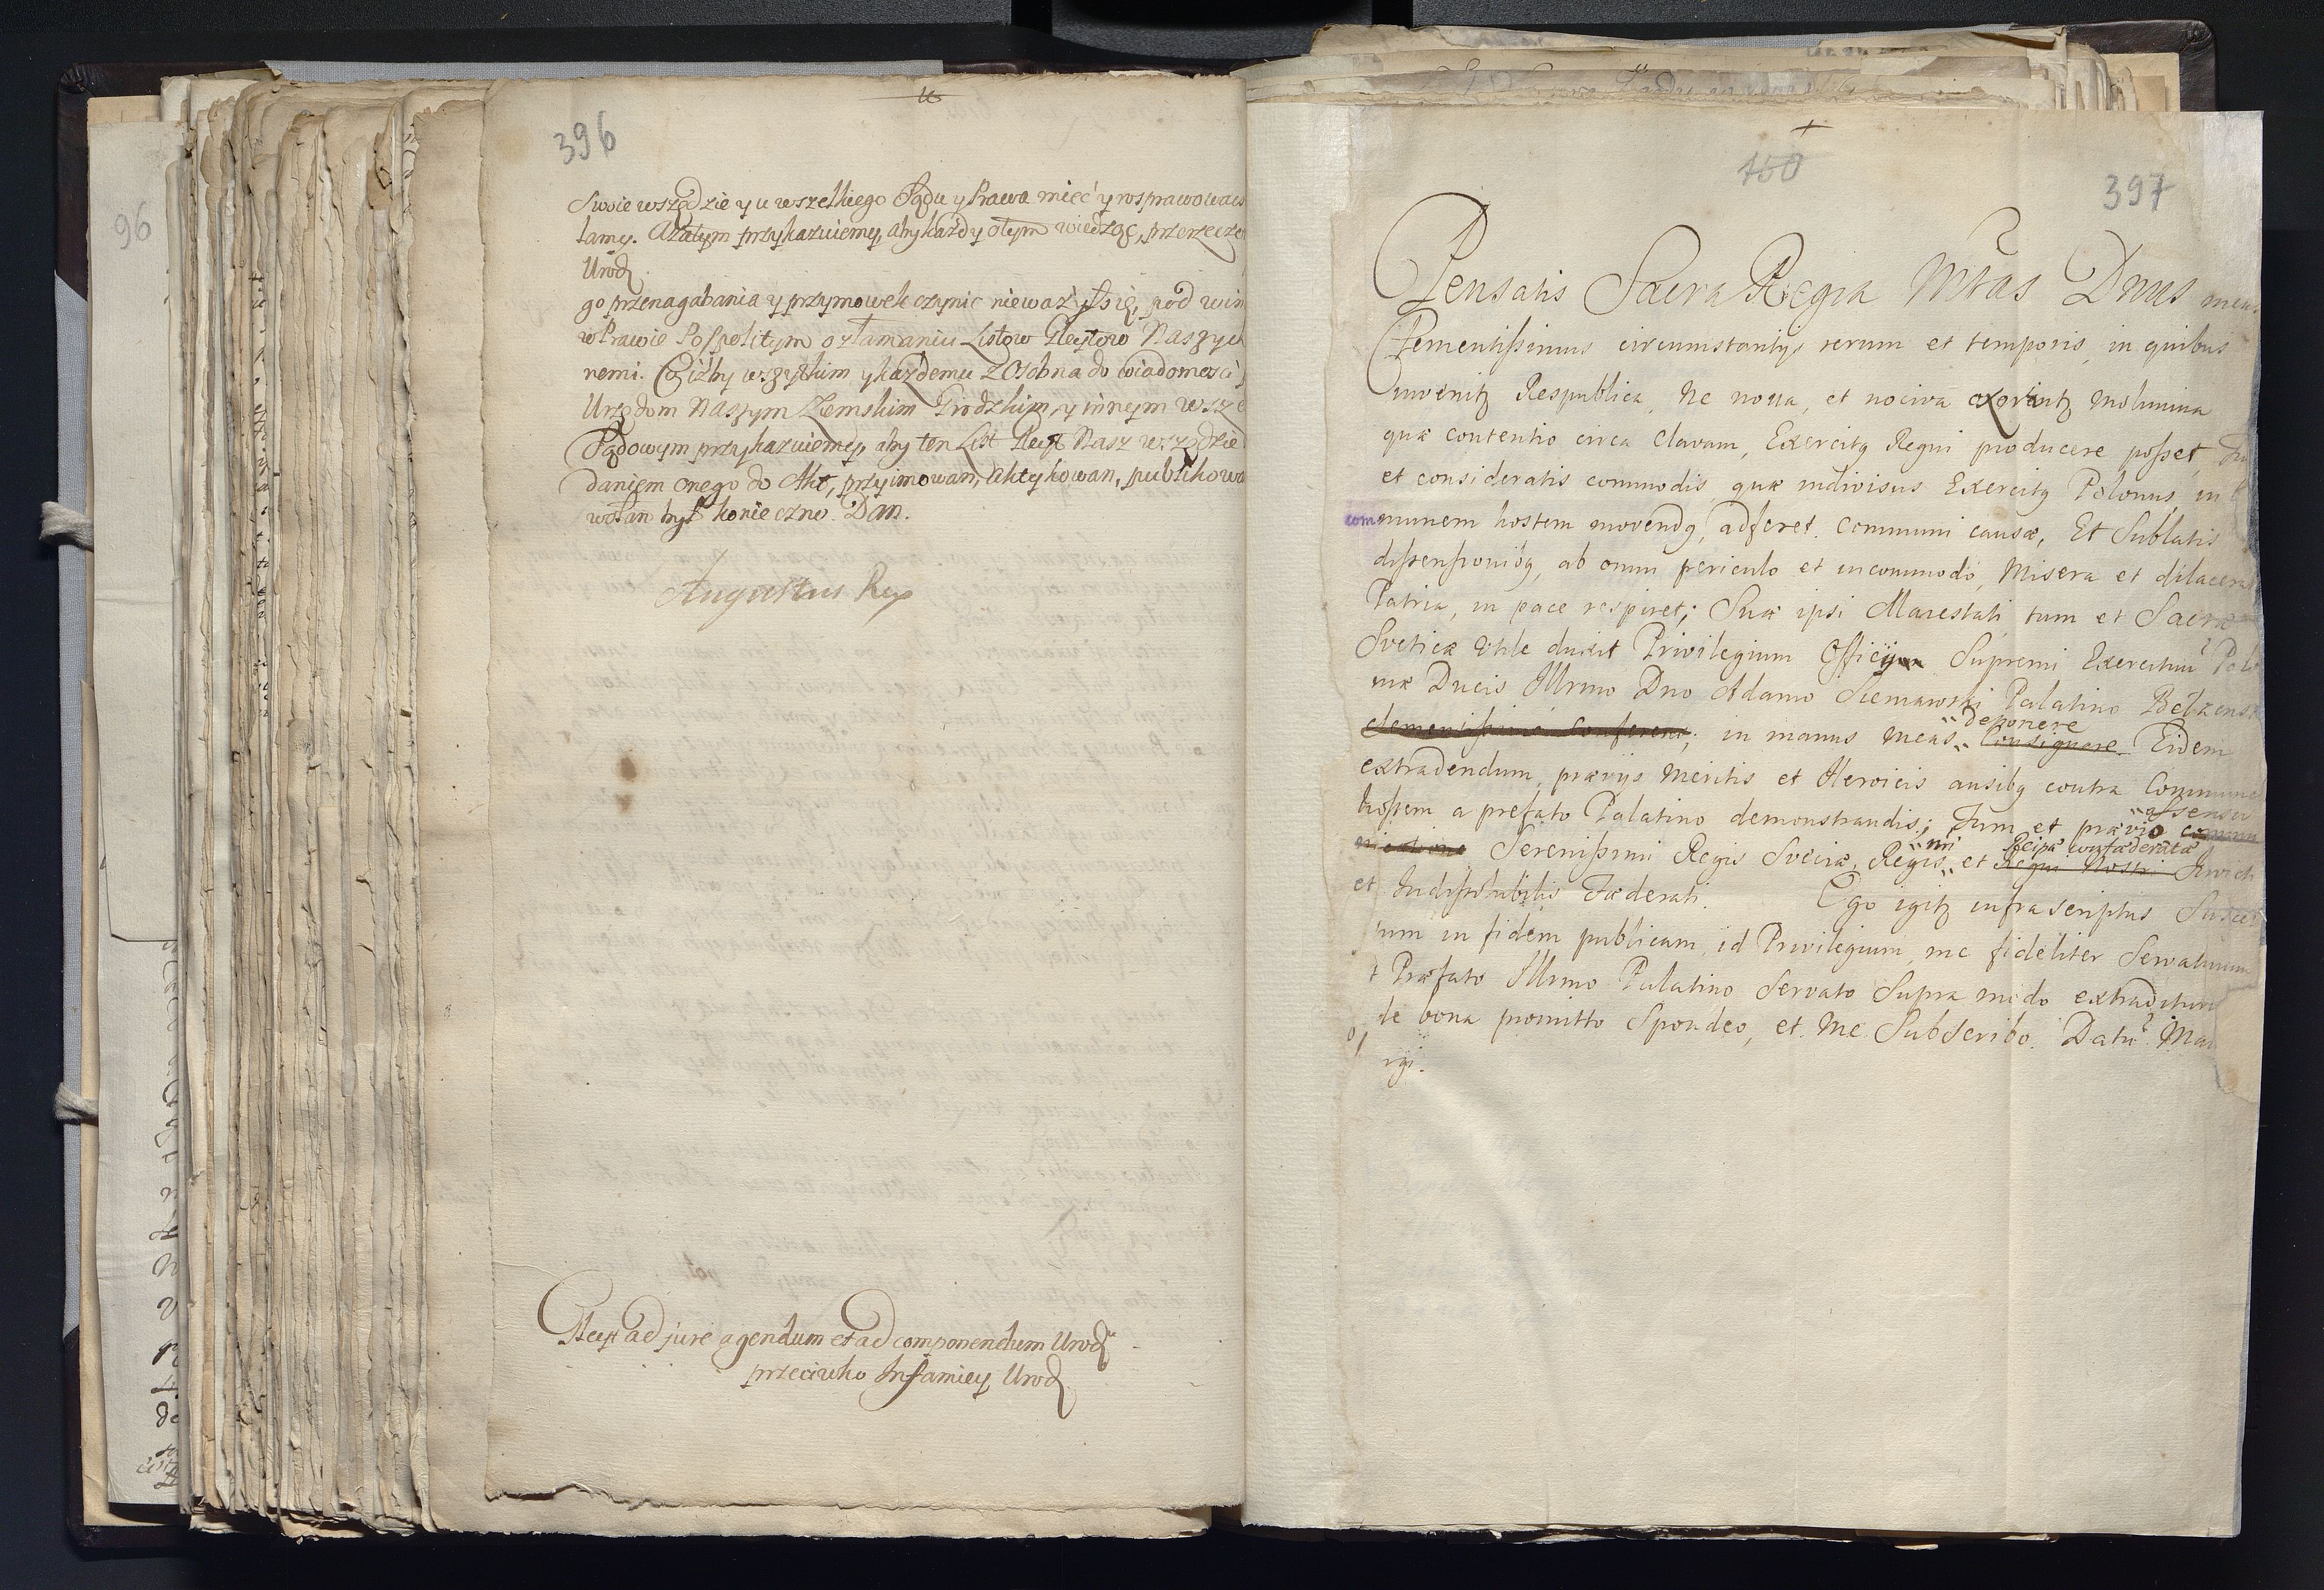 396
Swoie wszędzie y u wszelkiego Sądu y Prawa mieć y rosprawowac
lamy. A zatym przykazuiemy, aby każdy o tym wiedząc, przerzeczo
Urodz
go przenagabania y przymowek czynic nieważył się, pod win
w Prawie Pospolitym o złamaniu Listow Gleytow Naszych
nemi. Co iżby wszytkim y każdemu z Osobna do wiadomosci
Urzędom Naszym Ziemskim Grodzkim, y innym wsze
Sądowym przykazuiemy, aby ten List Gleyt Nasz wszędzie
daniem onego do Akt, przyimowan, aktykowan, publikowa
wołan był koniecznie. Dan.
Augustus Rex
Gleyt ad jure agendum et ad componendum Urodz
przeciwko Infamiey Urodz
96
150
397
Pensatis Sacra Regia Mtas Dnus meus
Clementissimus circumstantijs rerum et temporis, in quibus
invenitz Respublica, Ne nova, et nociva exorintz molimina
quæ contentio circa Clavam, Exercitq Regni producere posset,
et consideratis commodis, quæ indivisus Exercitq Polonus, in
communem hostem movendq, adferet communi causæ, Et Sublatis
dissensionibq, ab omni periculo et incommodo, Misera et dilacera
Patria, in pace respiret; Suæ ipsi Maiestati, tum et Sacræ
Sveticæ Utile duxit Privilegium Officij Supremi Exercituu Polo
niæ Ducis Illrmo Dno Adamo Sieniawski Palatino Belzensi
deponere
clementissime conferens; in manus meas Consignare Eidem
extradendum, prævijs Meritis et Heroicis ausibq contra Commune
assensu
hostem a prefato Palatino demonstrandis; Tum et prævio commu
nri Reipæ confæderatæ
nicatione Serenissimi Regis Sveciæ, Regis et Regni Nostri Amici
et Indissolubilis Fæderati. Ego igitz infrascriptus Suscep
tum in fidem publicam, id Privilegium, me fideliter Servaturum
t Præfato Illrmo Palatino Servato Supra modo extraditur
de bona promitto Spondeo, et Me Subscribo. Datu Mar
rgi.